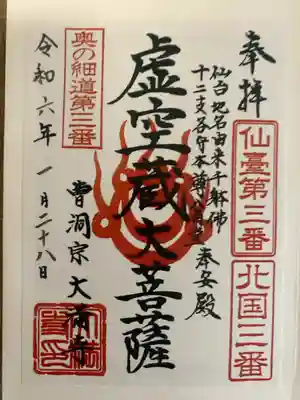 奉拝
仙臺第三番
北国三番
仙台地名由来千躰佛
十二支各守本尊八角堂奉安殿
虚空蔵大菩薩
奥の細道第三番
曹洞宗 大満寺
令和六年 一月二十八日